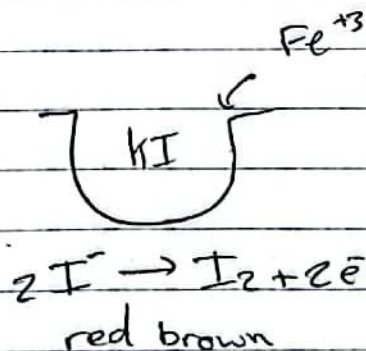 Fe⁺³
KI
2I⁻ → I₂ + 2e̅
red brown